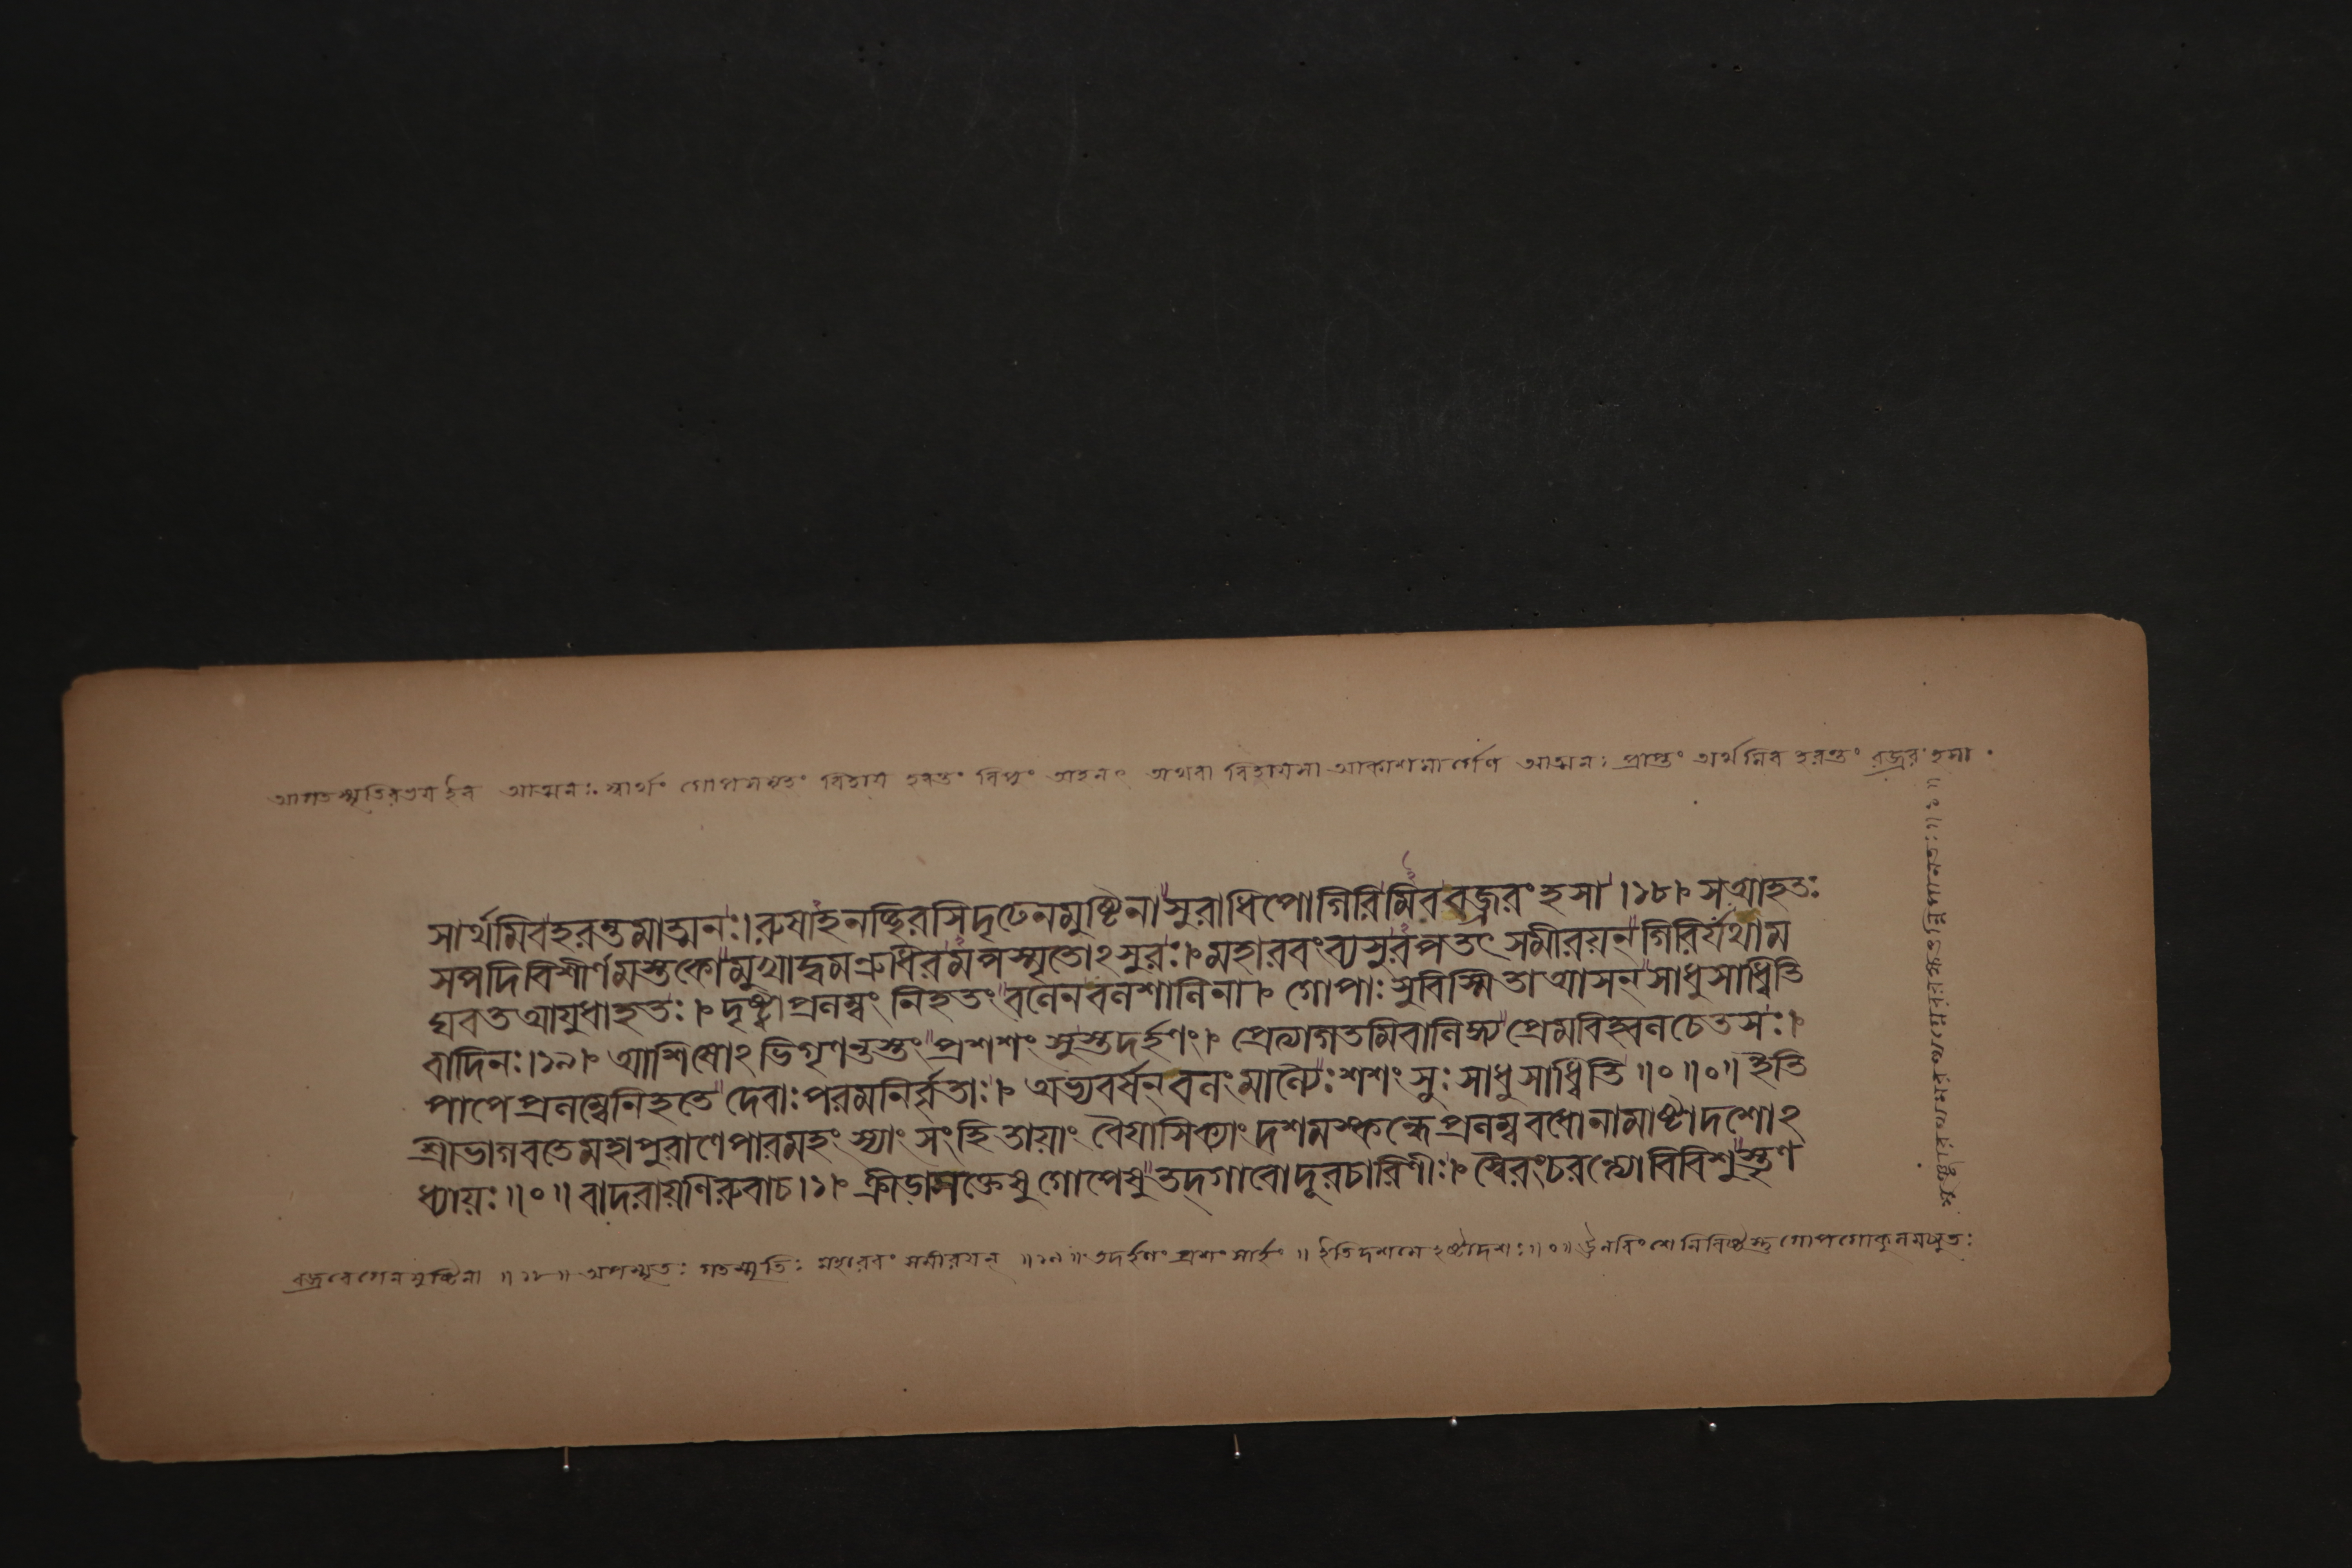 আগতস্মৃতিরভয ইব আত্মনঃ. স্বার্থং গোপসমূহং বিহায হরন্তং বিপুং অহনৎ অথবা বিহাযসা আকাশমার্গেণ আত্মনঃ প্রাপ্তং অর্থমিব হরন্তং বজ্ররংহসা .
সার্থমিবহরন্তমাত্মনঃ। রুষাহনচ্ছিরসিদৃঢেনমুষ্টিনা সুরাধিপোগিরিমিববজ্ররংহসা ।১৮। সআহতঃ
সপদিবিশীর্ণমস্তকোমুখাদ্বমণ্রুধিরমপস্মৃতোঽসুরঃ। মহারবংব্যসুরপতৎ সমীরয়ন্ গিরির্যথাম
ঘবতআযুধাহতঃ। দৃষ্ট্বাপ্রলম্বং নিহতং বলেনবলশালিনা। গোপাঃসুবিস্মিতাআসন্ সাধুসাধ্বিতি
বাদিনঃ।১৯। আশিষোঽভিগৃণন্তস্তং প্রশশংসুস্তদর্হণং। প্রেত্যাগতমিবালিঙ্গ্য প্রেমবিহ্বলচেতসঃ।
পাপেপ্রলম্বেনিহতে দেবাঃপরমনির্বৃতাঃ। অভ্যবর্ষন্ বলংমাল্যৈঃশশংসুঃ সাধুসাধ্বিতি ॥০॥০॥ ইতি
শ্রীভাগবতেমহাপুরাণেপারমহংস্যাং সংহিতায়াং বৈয়াসিক্যাং দশমস্কন্ধে প্রলম্ববধোনামাষ্টাদশোঽ
ধ্যায়ঃ॥০॥ বাদরায়ণিরুবাচ।১। ক্রীডাসক্তেষু গোপেষু তদ্গাবোদূরচারিণীঃ। স্বৈরংচরন্ত্যোবিবিশুস্তৃণ
বজ্রবেগেনমুষ্টিনা ॥১৮॥ অপস্মৃতঃ গতস্মৃতিঃ মহারবং সমীরযন্ ॥১৯॥ তদর্হণং প্রশংসার্হং ॥ ইতিদশমে ঽষ্টাদশঃ॥০॥ ঊনবিংশে নিবিষ্টস্তু গোপগোকুলমচ্যুতঃ